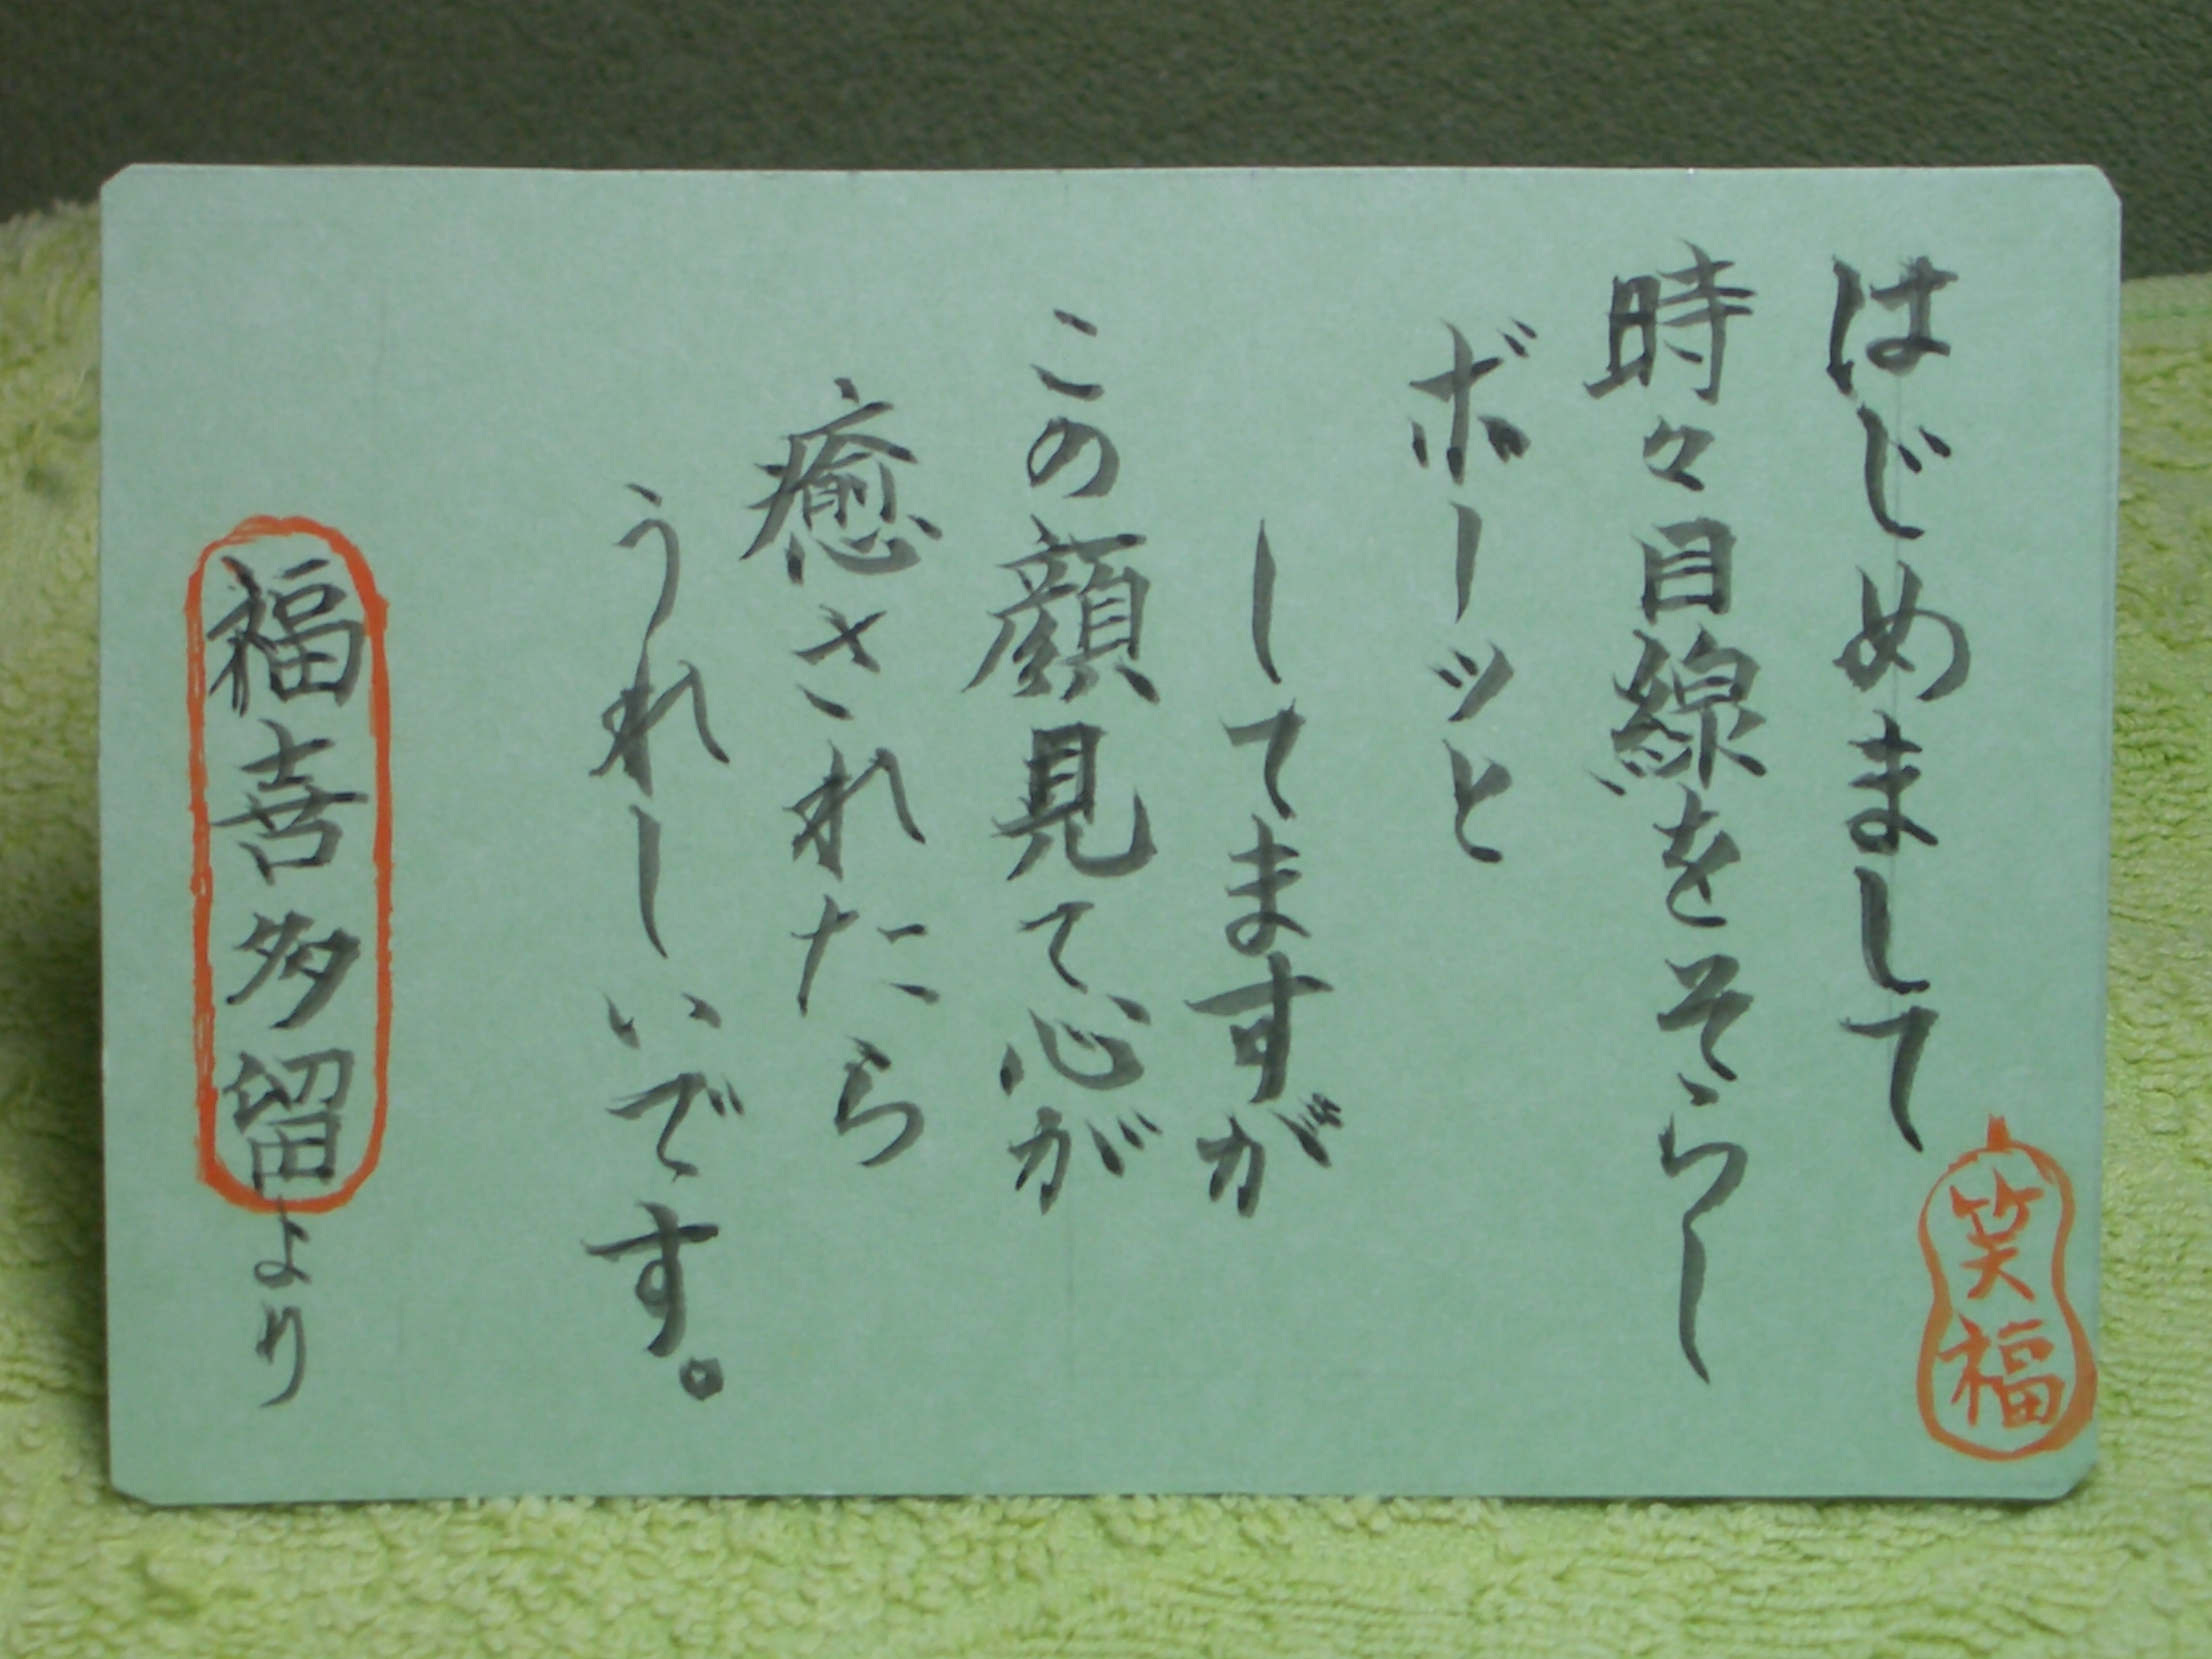 はじめまして
時々目線をそらし
ボーッと
してますが
この顔見て心が
癒されたら
うれしいです。
福喜多留より
笑福